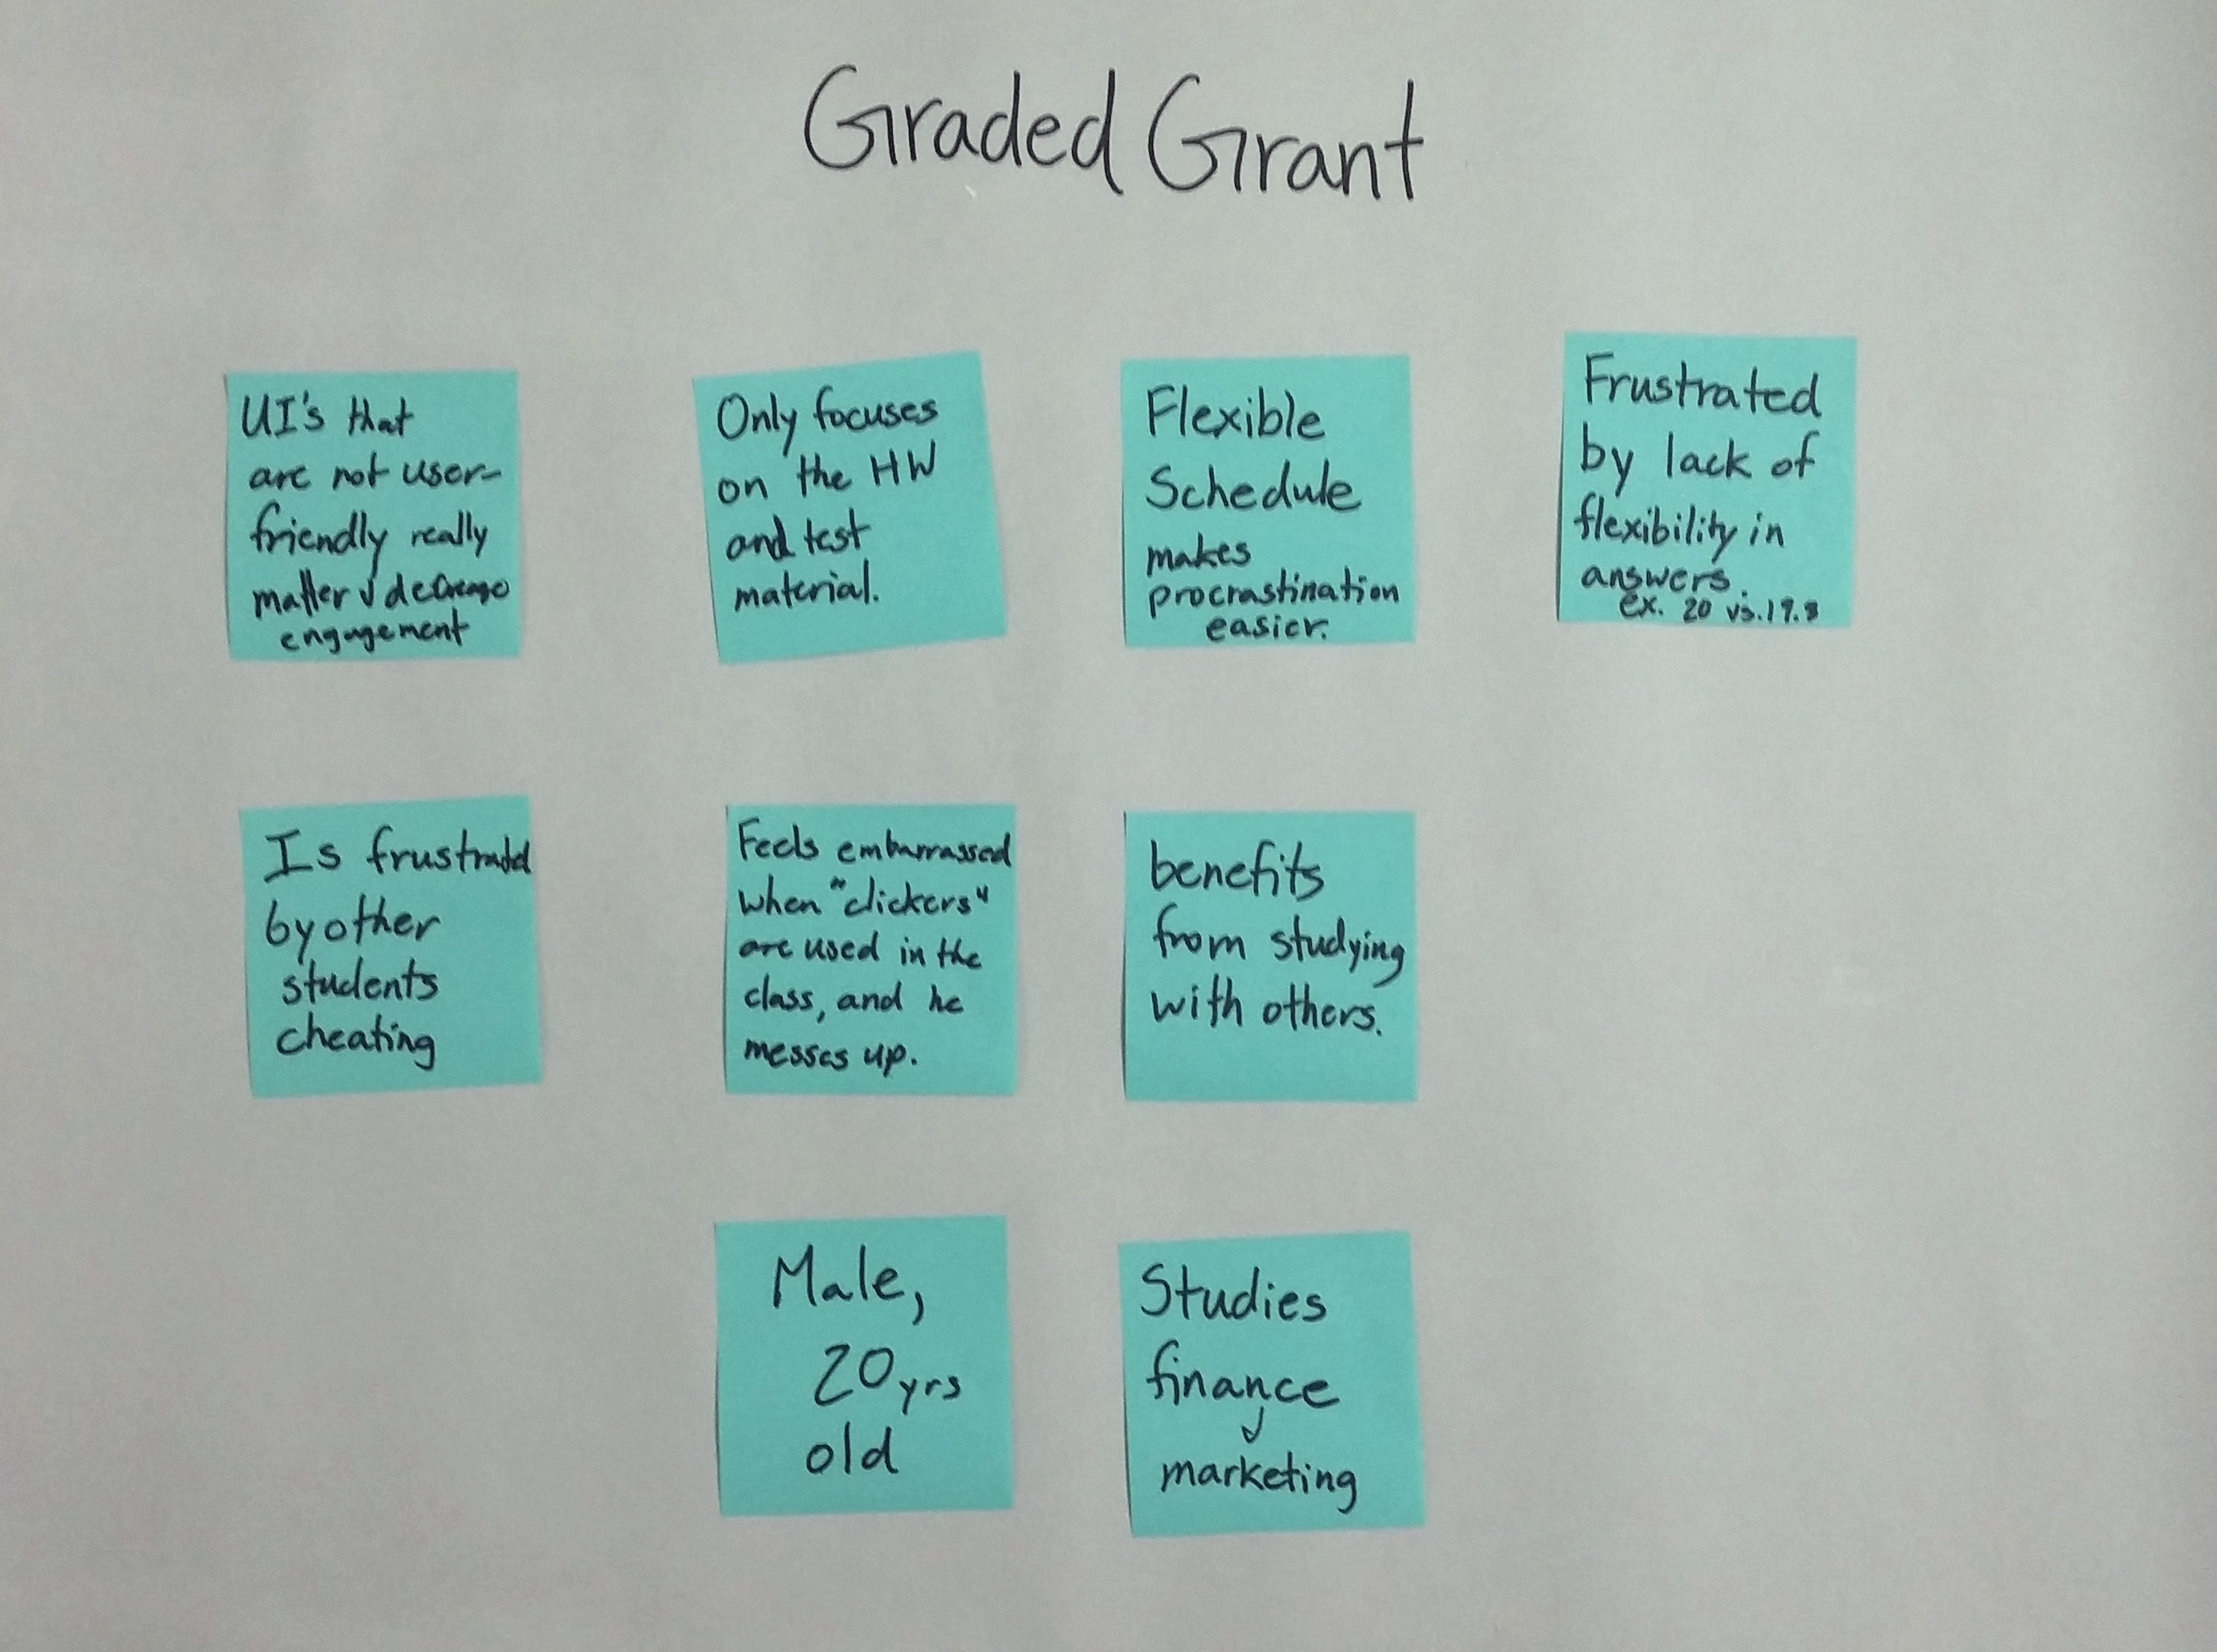 Graded Grant
UI's that
are not user-
friendly really
matter & decrease
engagement
Only focuses
on the HW
and test
material.
Flexible
Schedule
makes
procrastination
easier.
Frustrated
by lack of
flexibility in
answers.
ex. 20 vs. 19.8
Is frustrated
by other
students
cheating
Feels embarrassed
when "clickers"
are used in the
class, and he
messes up.
benefits
from studying
with others.
Male,
20 yrs
old
Studies
finance
&
marketing